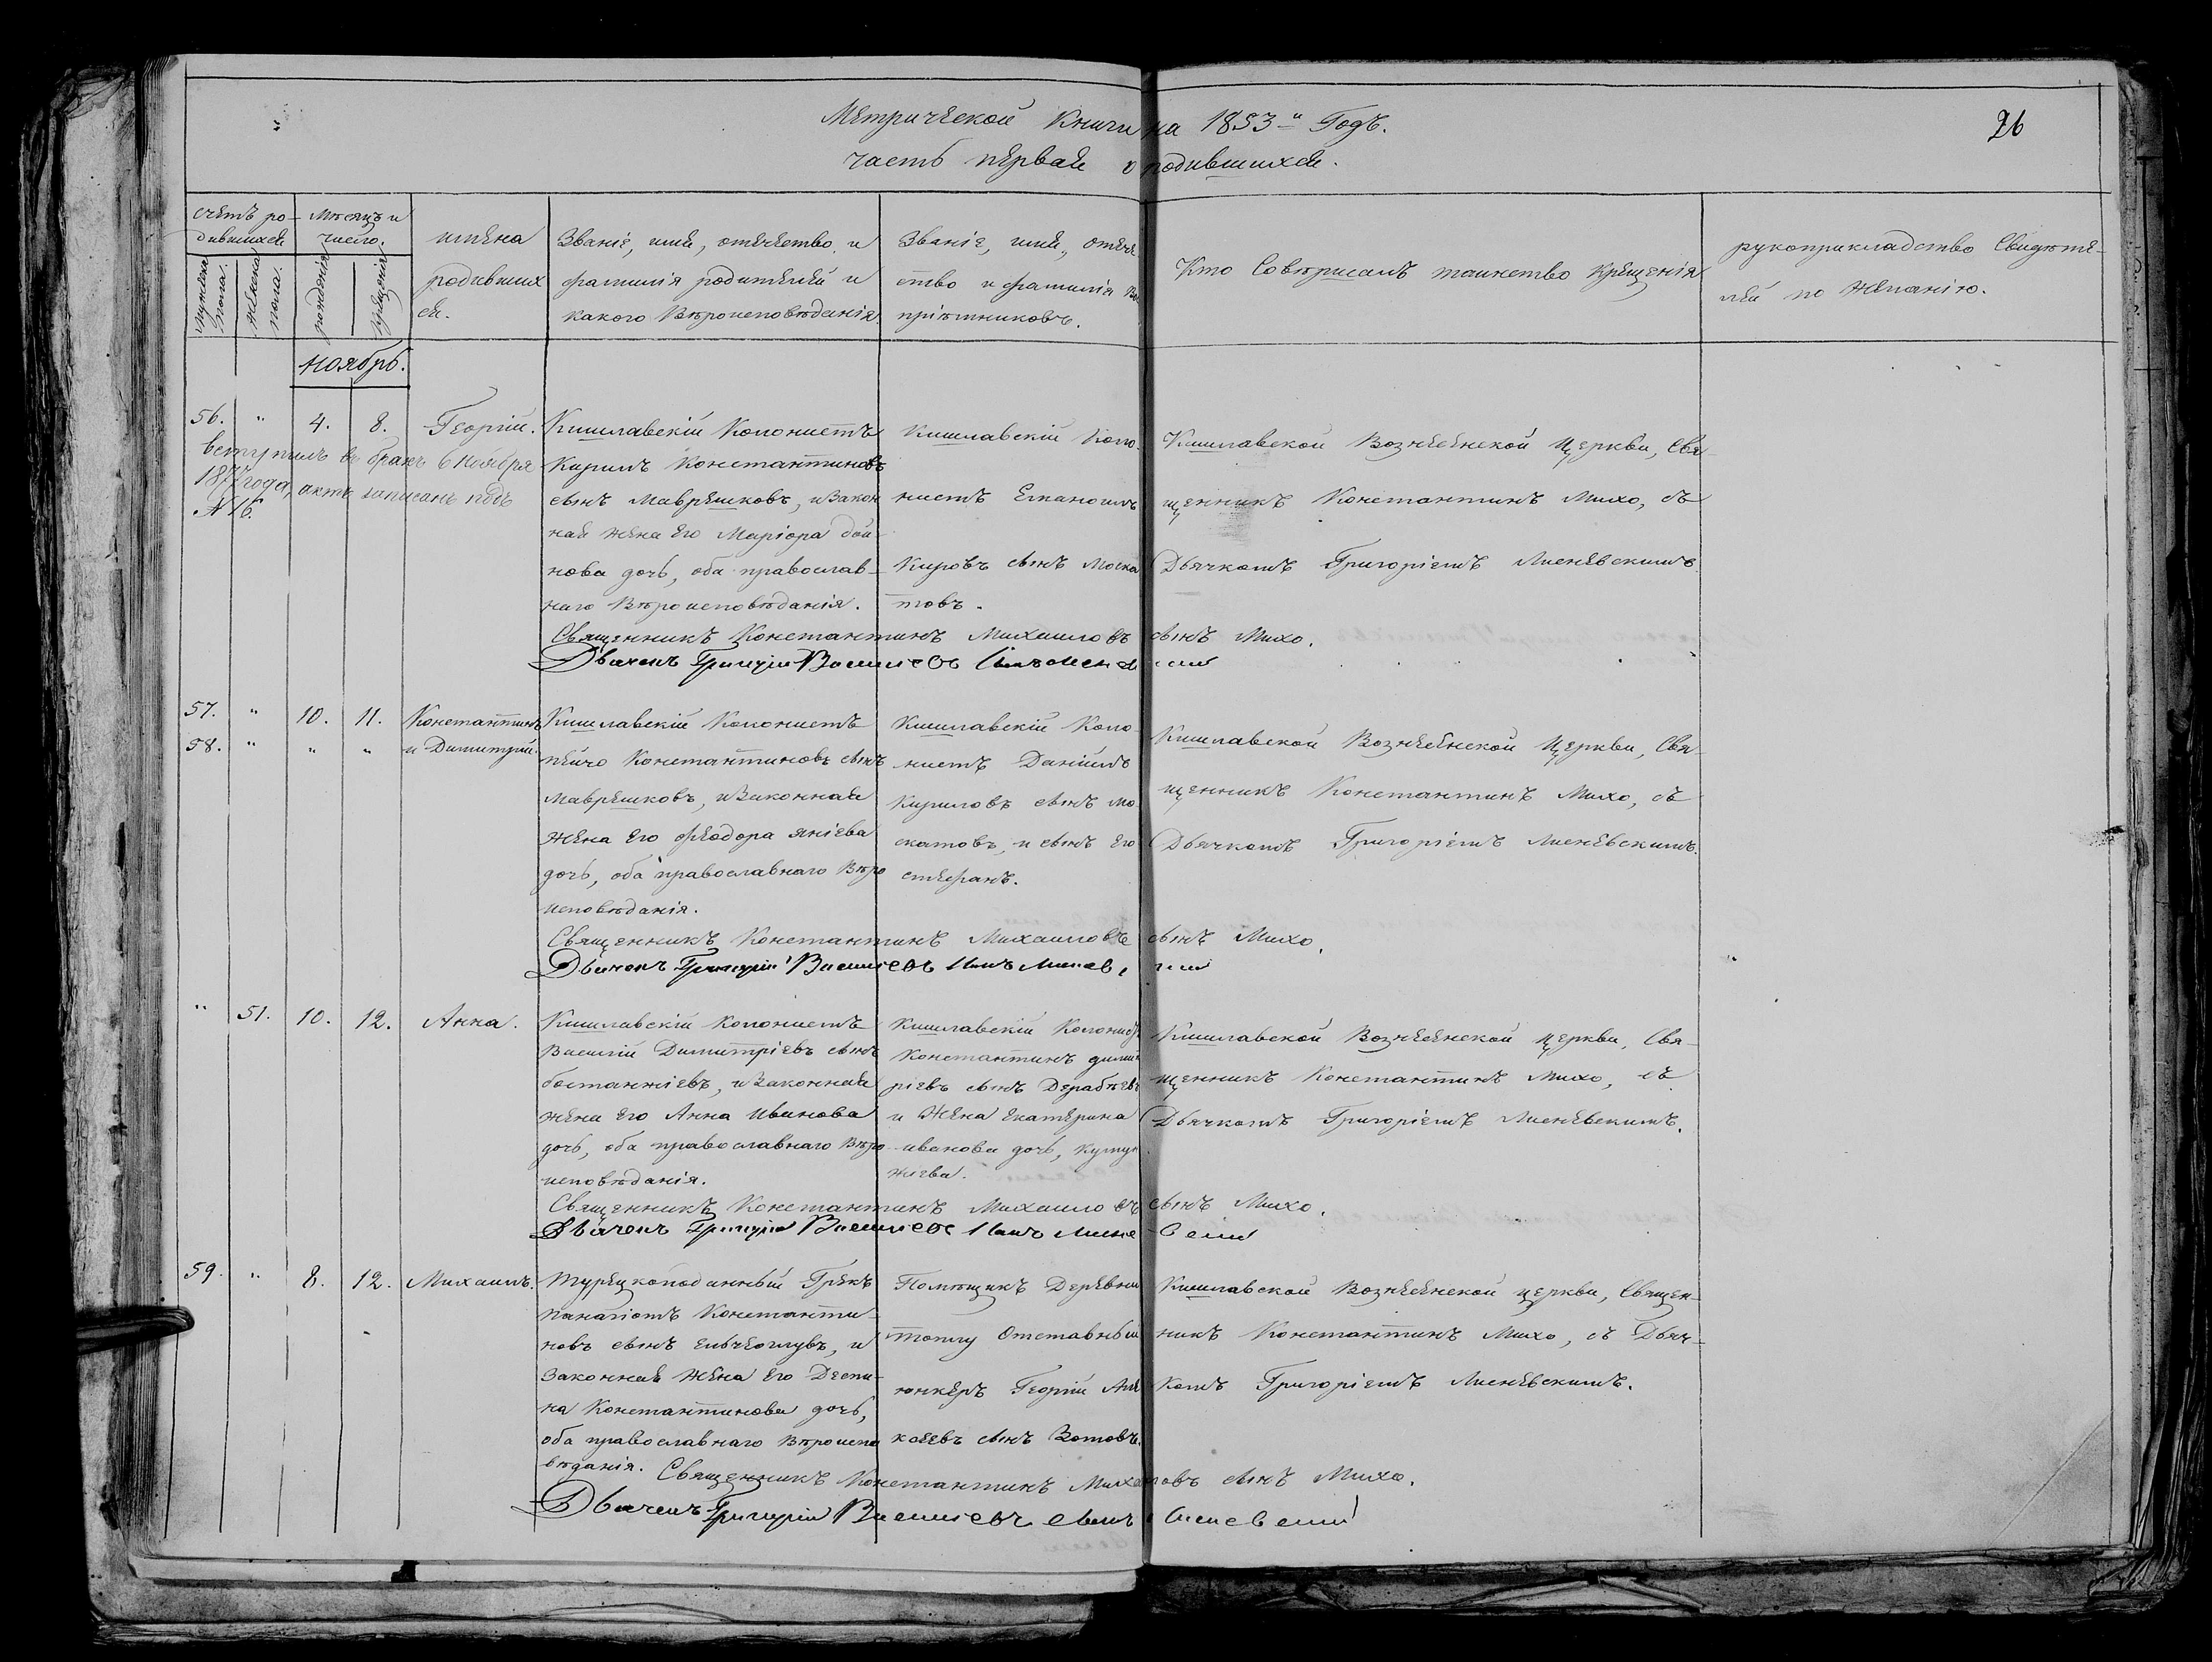 Метрической Книги на 1853й Годъ.
26
часть первая о родившихся.
счетъ ро-
дившихся
Мѣсяцъ и
число.
мужеска
пола.
женска
пола.
рожденія
крещенія
имена
родивших
ся.
Званіе, имя, отечество и
фамилія родителей и
какого Вѣроисповѣданія.
Званіе, имя, отече
ство и фамилія во
пріемниковъ.
Кто Совершалъ таинство крещенія
рукоприкладство Свидѣте-
лей по желанію.
Ноябрь.
56. " 4. 8. Георгій.
вступилъ въ бракъ 6 ноября
1877 года, актъ записанъ подъ
N 16.
Кишлавскій Колонистъ
Кирилъ Константиновъ
сынъ Маврешковъ, и Закон
ная жена его Маріора Дой-
нова дочь, оба православ-
наго Вѣроисповѣданія.
Кишлавскій Коло-
нистъ Емануилъ
Кировъ сынъ Моска
товъ.
Кишлавской Вознесенской Церкви, Свя-
щенникъ Константинъ Михо, съ
Дьячкомъ Григоріемъ Лисневскимъ.
Священникъ Константинъ Михаиловъ сынъ Михо.
Дьячекъ Григорій Василіевъ
57. " 10. 11. Константинъ
58. " " " и Димитрій.
Кишлавскій Колонистъ
пейчо Константиновъ сынъ
Маврешковъ, и Законная
жена его Феодора Яніева
дочь, оба православнаго Вѣро
исповѣданія.
Кишлавскій Коло-
нистъ Даніилъ
Кириловъ сынъ Мо-
скатовъ, и сынъ его
стефанъ.
Кишлавской Вознесенской Церкви, Свя-
щенникъ Константинъ Михо, съ
Дьячкомъ Григоріемъ Лисневскимъ.
Священникъ Константинъ Михаиловъ сынъ Михо.
Дьячекъ Григорій Василіевъ
" 51. 10. 12. Анна.
Кишлавскій Колонистъ
Василій Димитріевъ сынъ
бостанжіевъ, и Законная
жена его Анна Иванова
дочь, оба православнаго Вѣро
исповѣданія.
Кишлавскій Колонистъ
Константинъ димит
ріевъ сынъ
и Жена Екатерина
иванова дочь,
жіева.
Кишлавской Вознесенской церкви, Свя-
щенникъ Константинъ Михо, съ
Дьячкомъ Григоріемъ Лисневскимъ.
Священникъ Константинъ Михаиловъ сынъ Михо.
Дьячекъ Григорій Василіевъ
59. " 8. 12. Михаилъ.
Турецкоподанный Грекъ
Панаіотъ Константи-
новъ сынъ и
Законная жена его Деспи-
на Константинова дочь,
оба православнаго Вѣроиспо
вѣданія.
Помѣщикъ Деревни
Отставный
юнкеръ Георгій Але
ксѣевъ сынъ Зотовъ.
Кишлавской Вознесенской церкви, Священ-
никъ Константинъ Михо, съ Дьяч-
комъ Григоріемъ Лисневскимъ.
Священникъ Константинъ Михаиловъ сынъ Михо.
Дьячекъ Григорій Василіевъ сынъ Лисневский